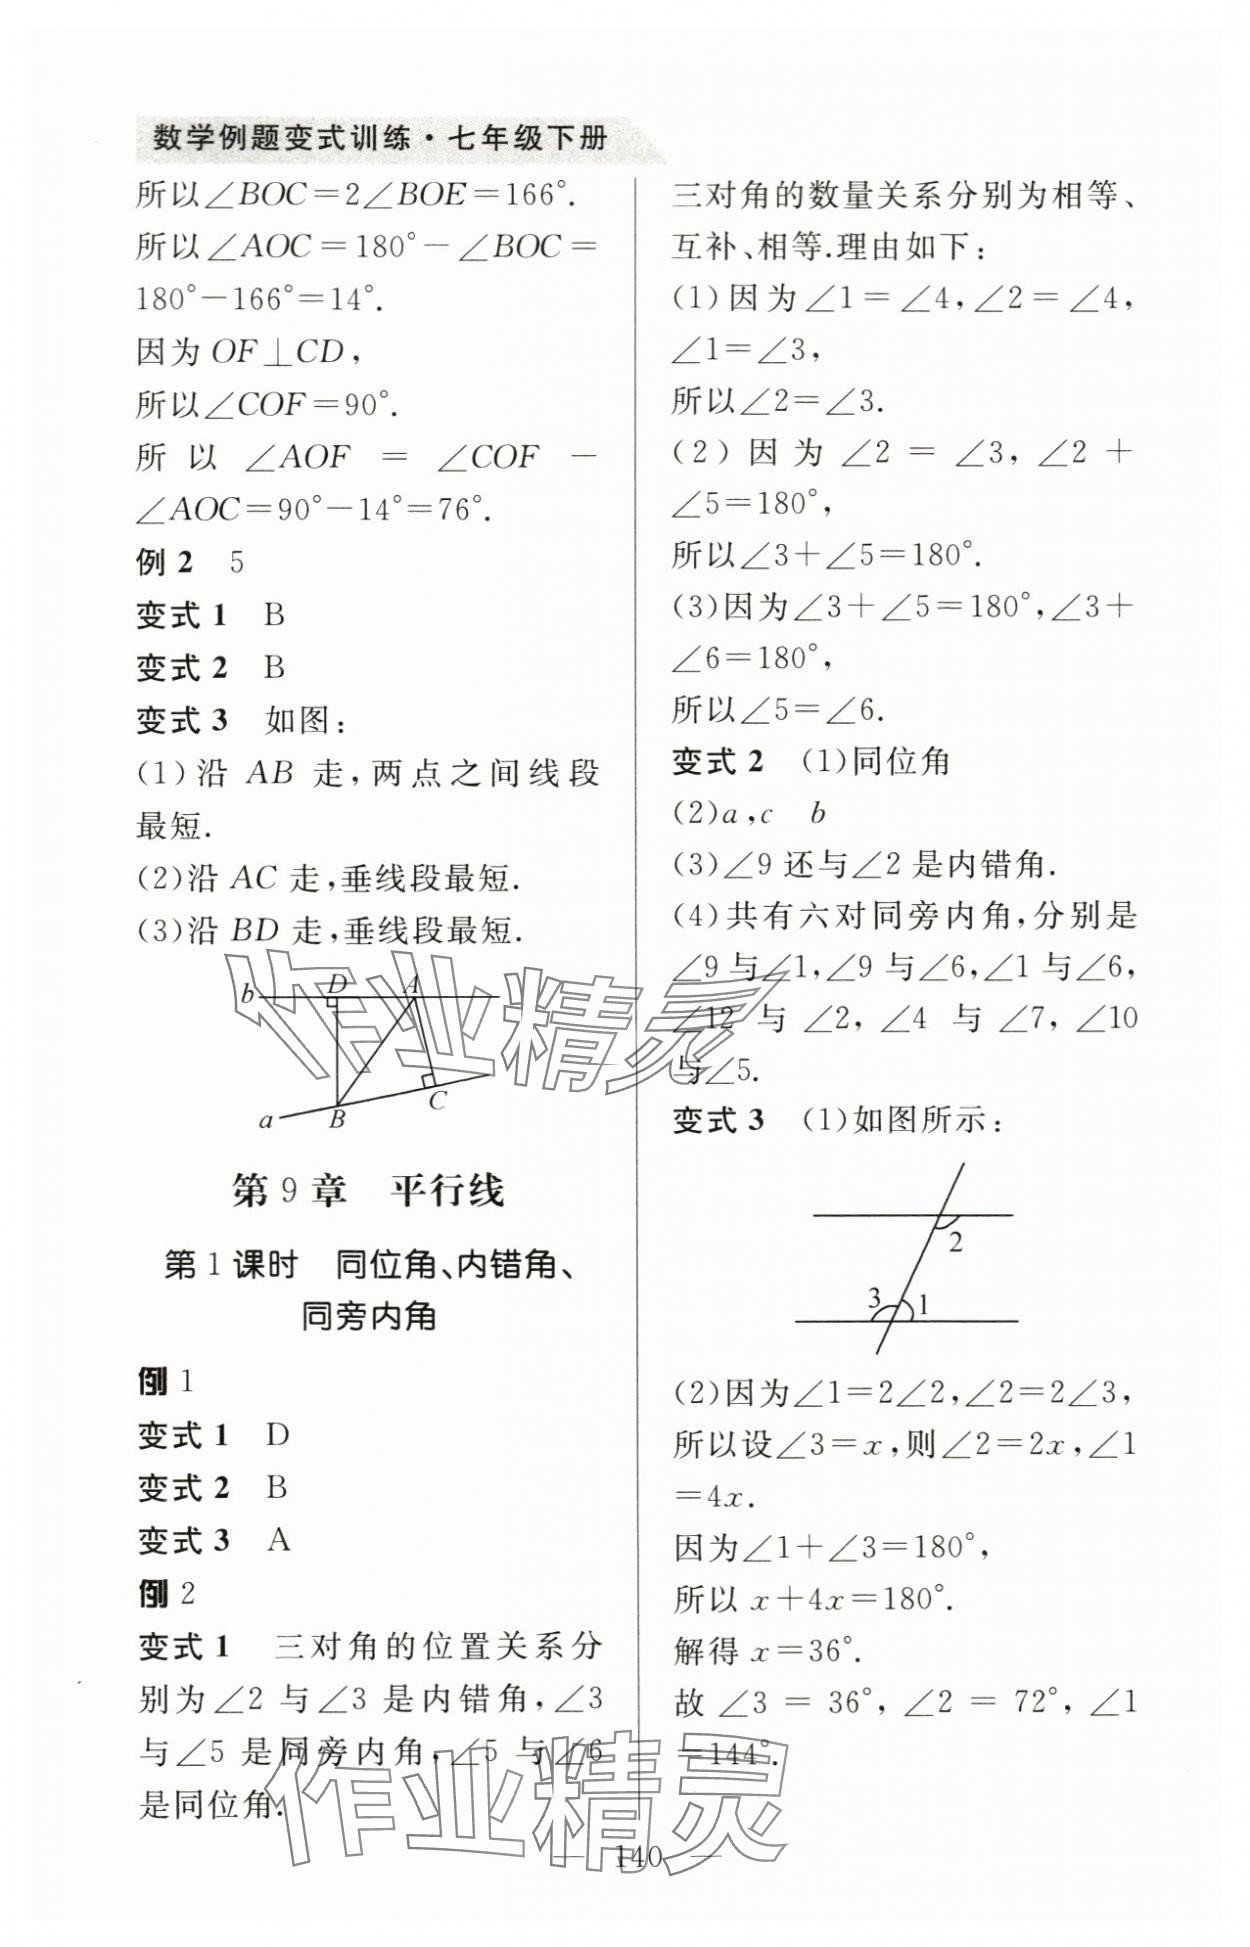 数学例题变式训练·七年级下册
所以∠BOC=2∠BOE=166°.
所以∠AOC=180°-∠BOC=
180°-166°=14°.
因为OF⊥CD,
所以∠COF=90°.
所以 ∠AOF = ∠COF -
∠AOC=90°-14°=76°.
例2 5
变式1 B
变式2 B
变式3 如图:
(1)沿 AB 走,两点之间线段
最短.
(2)沿 AC 走,垂线段最短.
(3)沿 BD 走,垂线段最短.
b D A
a B C
第9章 平行线
第1课时 同位角、内错角、
同旁内角
例1
变式1 D
变式2 B
变式3 A
例2
变式1 三对角的位置关系分
别为∠2与∠3是内错角,∠3
与∠5是同旁内角,∠5与∠6
是同位角.
三对角的数量关系分别为相等、
互补、相等.理由如下:
(1)因为∠1=∠4,∠2=∠4,
∠1=∠3,
所以∠2=∠3.
(2)因为∠2=∠3,∠2+
∠5=180°,
所以∠3+∠5=180°.
(3)因为∠3+∠5=180°,∠3+
∠6=180°,
所以∠5=∠6.
变式2 (1)同位角
(2)a,c b
(3)∠9还与∠2是内错角.
(4)共有六对同旁内角,分别是
∠9与∠1,∠9与∠6,∠1与∠6,
∠12与∠2,∠4与∠7,∠10
与∠5.
变式3 (1)如图所示:
2
3 1
(2)因为∠1=2∠2,∠2=2∠3,
所以设∠3=x,则∠2=2x,∠1
=4x.
因为∠1+∠3=180°,
所以x+4x=180°.
解得x=36°.
故∠3=36°,∠2=72°,∠1
=144°.
作业精灵
作业精灵
— 140 —